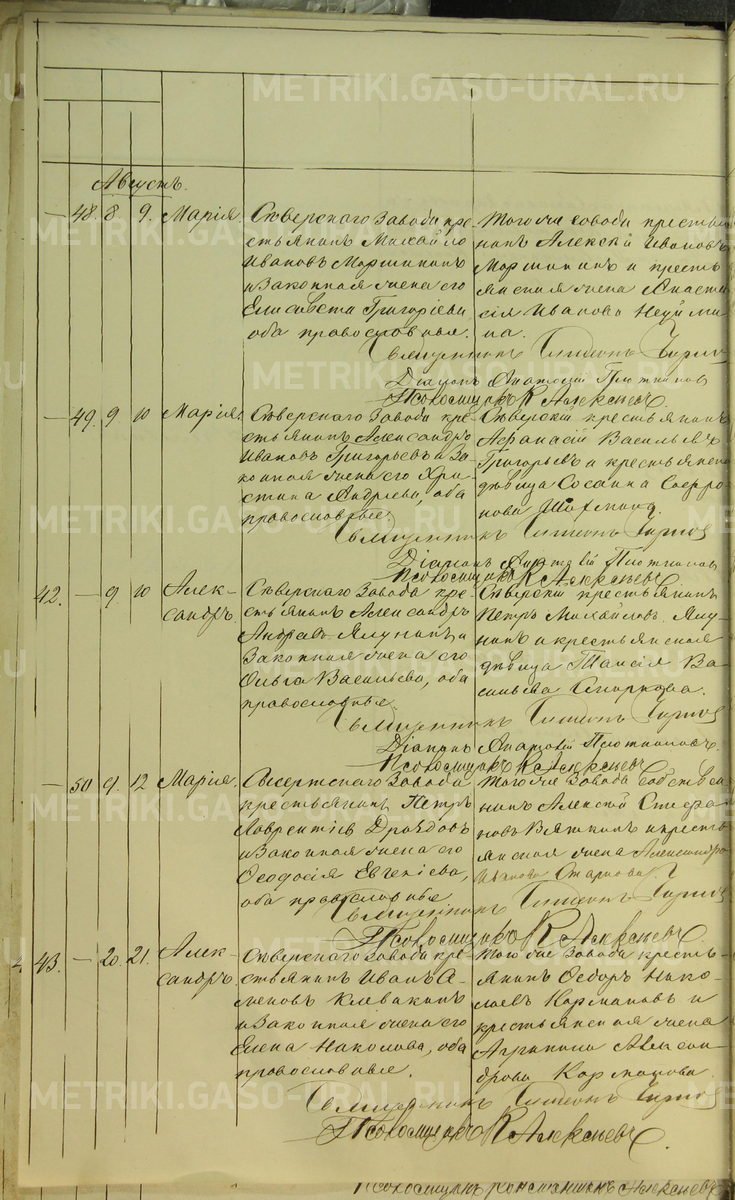 METRIKI.GASO-URAL.RU
Августъ.
— 48. 8 9. Марія.
Сѣверскаго Завода кре-
стьянинъ Михайло
Ивановъ
и законная жена его
Елисавета Григоріева
оба православные.
Того же завода крестья
нинъ Алексѣй Ивановъ
и кресть
янская жена Анаста
сія Иванова
Священникъ Симеонъ
Діаконъ Плотниковъ
Псаломщикъ К Алексѣевъ.
— 49. 9 10 Марія.
Сѣверскаго Завода кре-
стьянинъ Александръ
Ивановъ Григорьевъ и за-
конная жена его Хри-
стина Андреева, оба
православные.
Сѣверскій крестьянинъ
Афанасій Васильевъ
Григорьевъ и крестьянская
дѣвица
Священникъ Симеонъ
Діаконъ Плотниковъ
Псаломщикъ К Алексѣевъ.
42. — 9. 10 Алек-
сандръ.
Сѣверскаго Завода кре-
стьянинъ Александръ
Андреевъ Ялунинъ и
законная жена его
Ольга Васильева, оба
православные.
Сѣверскій крестьянинъ
Петръ Михайловъ Ялу
нинъ и крестьянская
дѣвица Таисія Ва
сильева
Священникъ Симеонъ
Діаконъ Плотниковъ.
Псаломщикъ К Алексѣевъ
— 50 9. 12 Марія.
Сысертскаго Завода
крестьянинъ Петръ
Лаврентіевъ Дроздовъ
и законная жена его
Ѳеодосія Евгеніева,
оба православные
Того же Завода
Алексѣй Стефа
новъ Вяткинъ и кресть
янская жена Александра
Иванова
Священникъ Симеонъ
Псаломщикъ К Алексѣевъ.
43. — 20. 21. Алек-
сандръ.
Сѣверскаго Завода кре-
стьянинъ Иванъ
Клевакинъ
и законная жена его
Елена Николаева, оба
православные.
Того же Завода кресть-
янинъ Ѳедоръ Нико-
лаевъ Кормановъ и
крестьянская жена
Агрипина Алексан-
дрова Корманова.
Священникъ Симеонъ
Псаломщикъ К Алексѣевъ.
Псаломщикъ Константинъ Алексѣевъ